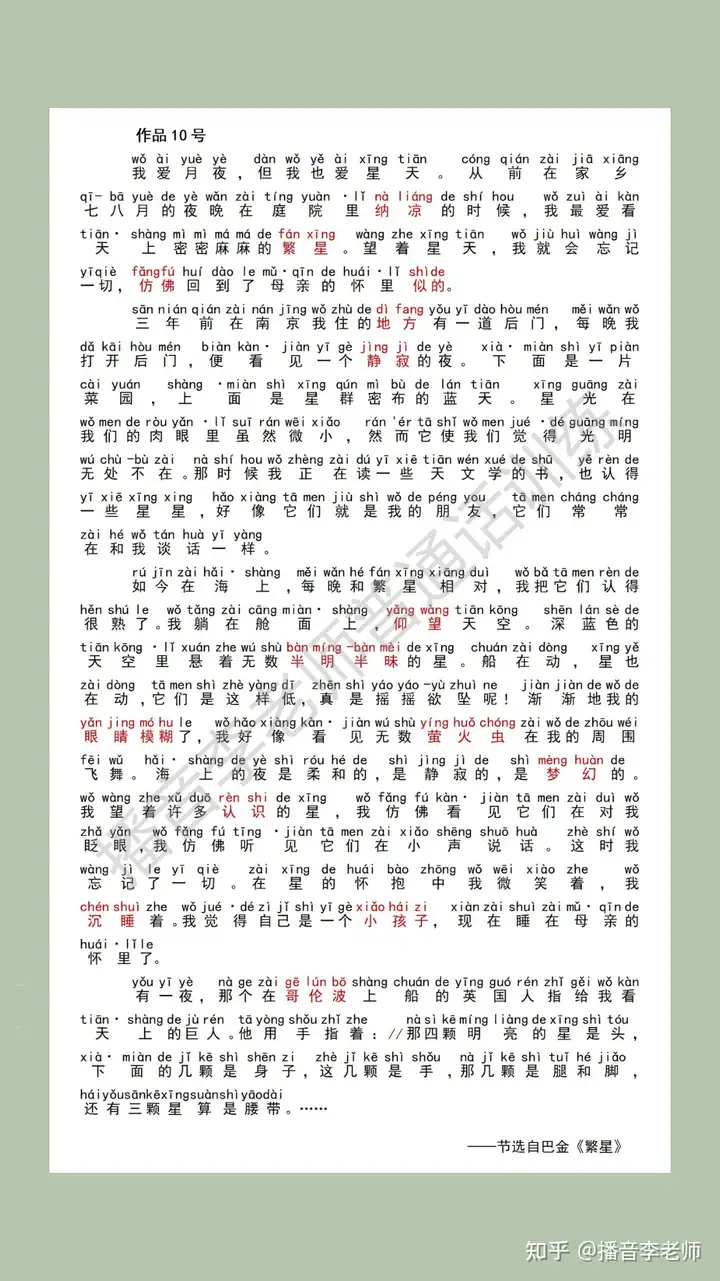 作品10号
wǒ ài yuè yè dàn wǒ yě ài xīng tiān cóng qián zài jiā xiāng
我爱月夜，但我也爱星天。从前在家乡
qī-bā yuè de yè wǎn zài tíng yuàn·lǐ nà liáng de shí hou wǒ zuì ài kàn
七八月的夜晚在庭院里纳凉的时候，我最爱看
tiān·shàng mì mì má má de fán xīng wàng zhe xīng tiān wǒ jiù huì wàng jì
天上密密麻麻的繁星。望着星天，我就会忘记
yīqiè fǎngfú huí dào le mǔ·qīn de huái·lǐ shìde
一切，仿佛回到了母亲的怀里似的。
sān nián qián zài nán jīng wǒ zhù de dì fang yǒu yī dào hòu mén měi wǎn wǒ
三年前在南京我住的地方有一道后门，每晚我
dǎ kāi hòu mén biàn kàn·jiàn yī gè jìng jì de yè xià·miàn shì yī piàn
打开后门，便看见一个静寂的夜。下面是一片
cài yuán shàng·miàn shì xīng qún mì bù de lán tiān xīng guāng zài
菜园，上面是星群密布的蓝天。星光在
wǒ men de ròu yǎn·lǐ suī rán wēi xiǎo rán'ér tā shǐ wǒ men jué·dé guāng míng
我们的肉眼里虽然微小，然而它使我们觉得光明
wú chù-bù zài nà shí hou wǒ zhèng zài dú yī xiē tiān wén xué de shū yě rèn de
无处不在。那时候我正在读一些天文学的书，也认得
yī xiē xīng xing hǎo xiàng tā men jiù shì wǒ de péng you tā men cháng cháng
一些星星，好像它们就是我的朋友，它们常常
zài hé wǒ tán huà yī yàng
在和我谈话一样。
rú jīn zài hǎi·shàng měi wǎn hé fán xīng xiāng duì wǒ bǎ tā men rèn de
如今在海上，每晚和繁星相对，我把它们认得
hěn shú le wǒ tǎng zài cāng miàn·shàng yǎng wàng tiān kōng shēn lán sè de
很熟了。我躺在舱面上，仰望天空。深蓝色的
tiān kōng·lǐ xuán zhe wú shù bàn míng-bàn mèi de xīng chuán zài dòng xīng yě
天空里悬着无数半明半昧的星。船在动，星也
zài dòng tā men shì zhè yàng dī zhēn shì yáo yáo-yù zhuì ne jiàn jiàn de wǒ de
在动，它们是这样低，真是摇摇欲坠呢！渐渐地我的
yǎn jing mó hu le wǒ hǎo xiàng kàn·jiàn wú shù yíng huǒ chóng zài wǒ de zhōu wéi
眼睛模糊了，我好像看见无数萤火虫在我的周围
fēi wǔ hǎi·shàng de yè shì róu hé de shì jìng jì de shì mèng huàn de
飞舞。海上的夜是柔和的，是静寂的，是梦幻的。
wǒ wàng zhe xǔ duō rèn shi de xīng wǒ fǎng fú kàn·jiàn tā men zài duì wǒ
我望着许多认识的星，我仿佛看见它们在对我
zhǎ yǎn wǒ fǎng fú tīng·jiàn tā men zài xiǎo shēng shuō huà zhè shí wǒ
眨眼，我仿佛听见它们在小声说话。这时我
wàng jì le yī qiè zài xīng de huái bào zhōng wǒ wēi xiào zhe wǒ
忘记了一切。在星的怀抱中我微笑着，我
chén shuì zhe wǒ jué·dé zì jǐ shì yī gè xiǎo hái zi xiàn zài shuì zài mǔ·qīn de
沉睡着。我觉得自己是一个小孩子，现在睡在母亲的
huái·lǐ le
怀里了。
yǒu yī yè nà ge zài gē lún bō shàng chuán de yīng guó rén zhǐ gěi wǒ kàn
有一夜，那个在哥伦波上船的英国人指给我看
tiān·shàng de jù rén tā yòng shǒu zhǐ zhe nà sì kē míng liàng de xīng shì tóu
天上的巨人。他用手指着：//那四颗明亮的星是头，
xià·miàn de jǐ kē shì shēn zi zhè jǐ kē shì shǒu nà jǐ kē shì tuǐ hé jiǎo
下面的几颗是身子，这几颗是手，那几颗是腿和脚，
háiyǒusānkēxīngsuànshìyāodài
还有三颗星算是腰带。……
——节选自巴金《繁星》
播音李老师普通话训练
知乎 @播音李老师